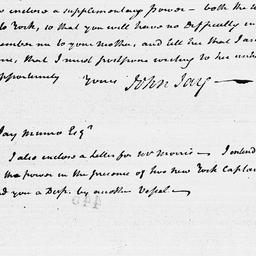 enclose a supplementary Power — both the
York, so that you will have no Difficulty in
member me to your mother, and tell her that I am
me, that I must postpone writing to her un
opportunity yours John Jay —
Jay Munro Esqr
I also enclose a Letter for Mr Morris — I intend
the power in the presence of two New York Captai
nd you a Dup. by another Vessel —